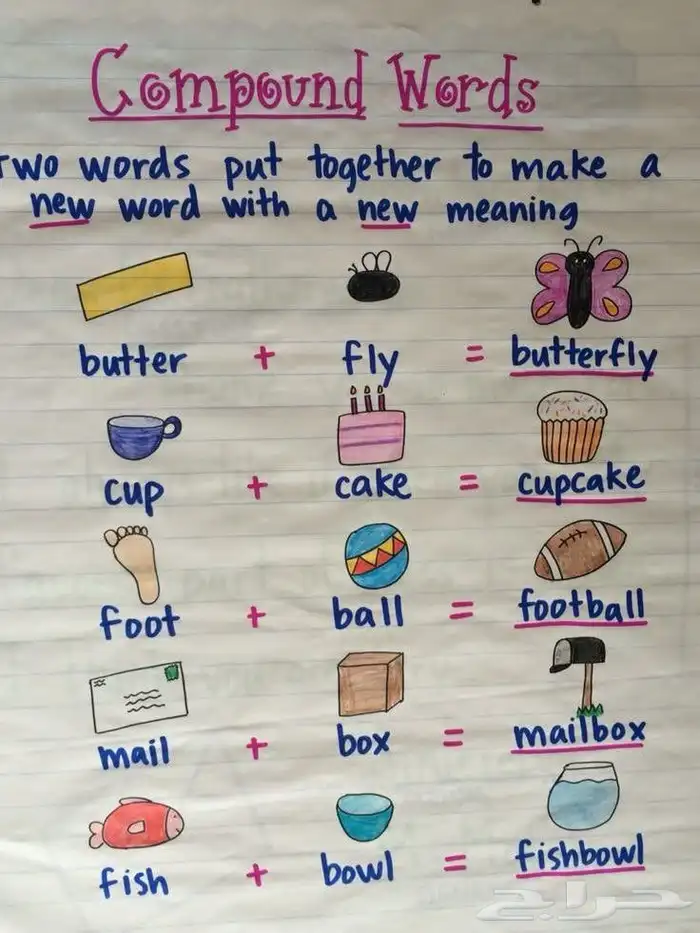 Compound Words
Two words put together to make a
new word with a new meaning
butter + fly = butterfly
cup + cake = cupcake
foot + ball = football
mail + box = mailbox
fish + bowl = fishbowl
حراج